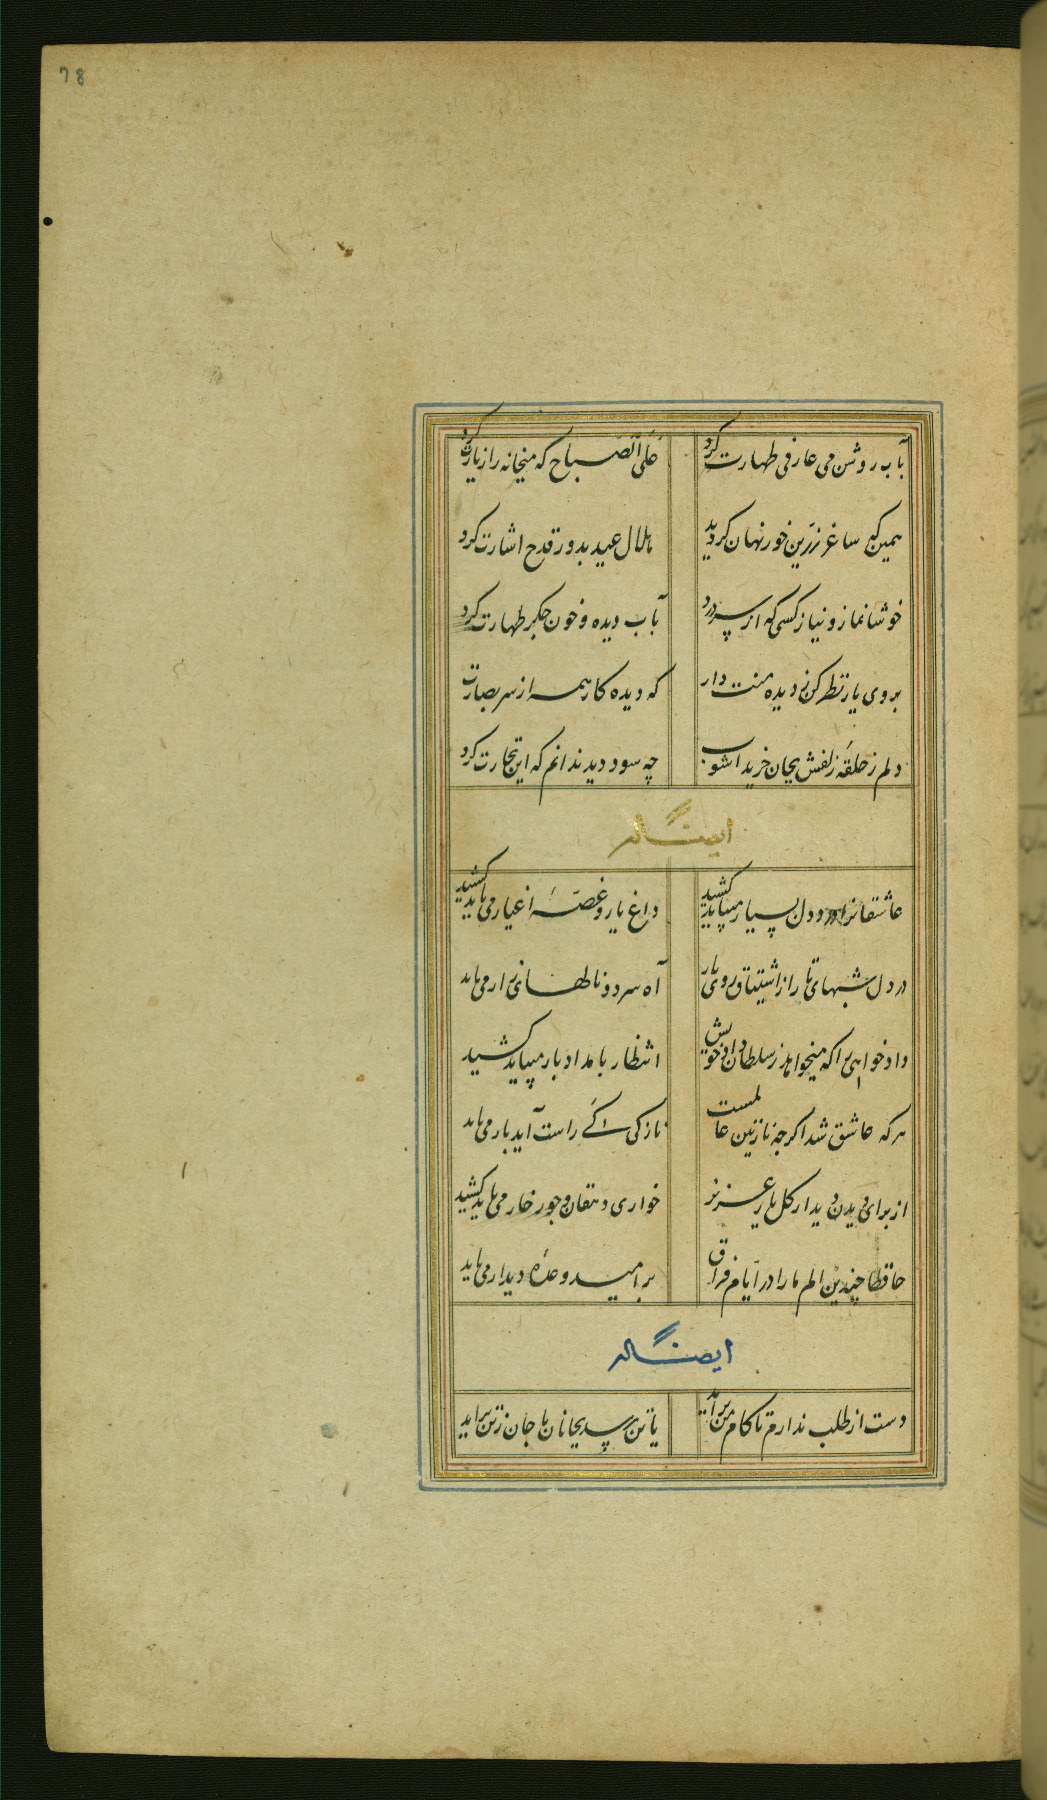 78
بآب روشن می عارفی طهارت کرد
علی الصباح که میخانه را زیارت کرد
همین که ساغر زرین خور نهان کردید
هلال عید بدور قدح اشارت کرد
خوشا نماز و نیاز کسی که از سر درد
بآب دیده و خون جکر طهارت کرد
بروی یار نظر کن ز دیده منت دار
که دیده کار همه از سر بصارت
دلم ز حلقهٔ زلفش بجان خرید اشوب
چه سود دید ندانم که این تجارت کرد
ایضاً له
عاشقانرا درد دل بسیار میباید کشید
داغ یار و غصهٔ اغیار می باید کشید
در دل شبهای تار از اشتیاق روی یار
آه سرد و نالهای زار می باید
داد خواهی را که میخواهد ز سلطان داد خویش
انتظار بامداد بار میباید کشید
هر که عاشق شد اکرچه نازنین عالمست
نازکی کی راست آید بار می باید
از برای دیدن دیدار کل یار عزیز
خواری دهقان و جور خار می باید کشید
حافظا چندین الم ما را در ایام فراق
بر امید وعدهٔ دیدار می باید
ایضاً له
دست از طلب ندارم تا کام من برآید
یا تن رسد بجانان یا جان ز تن براید